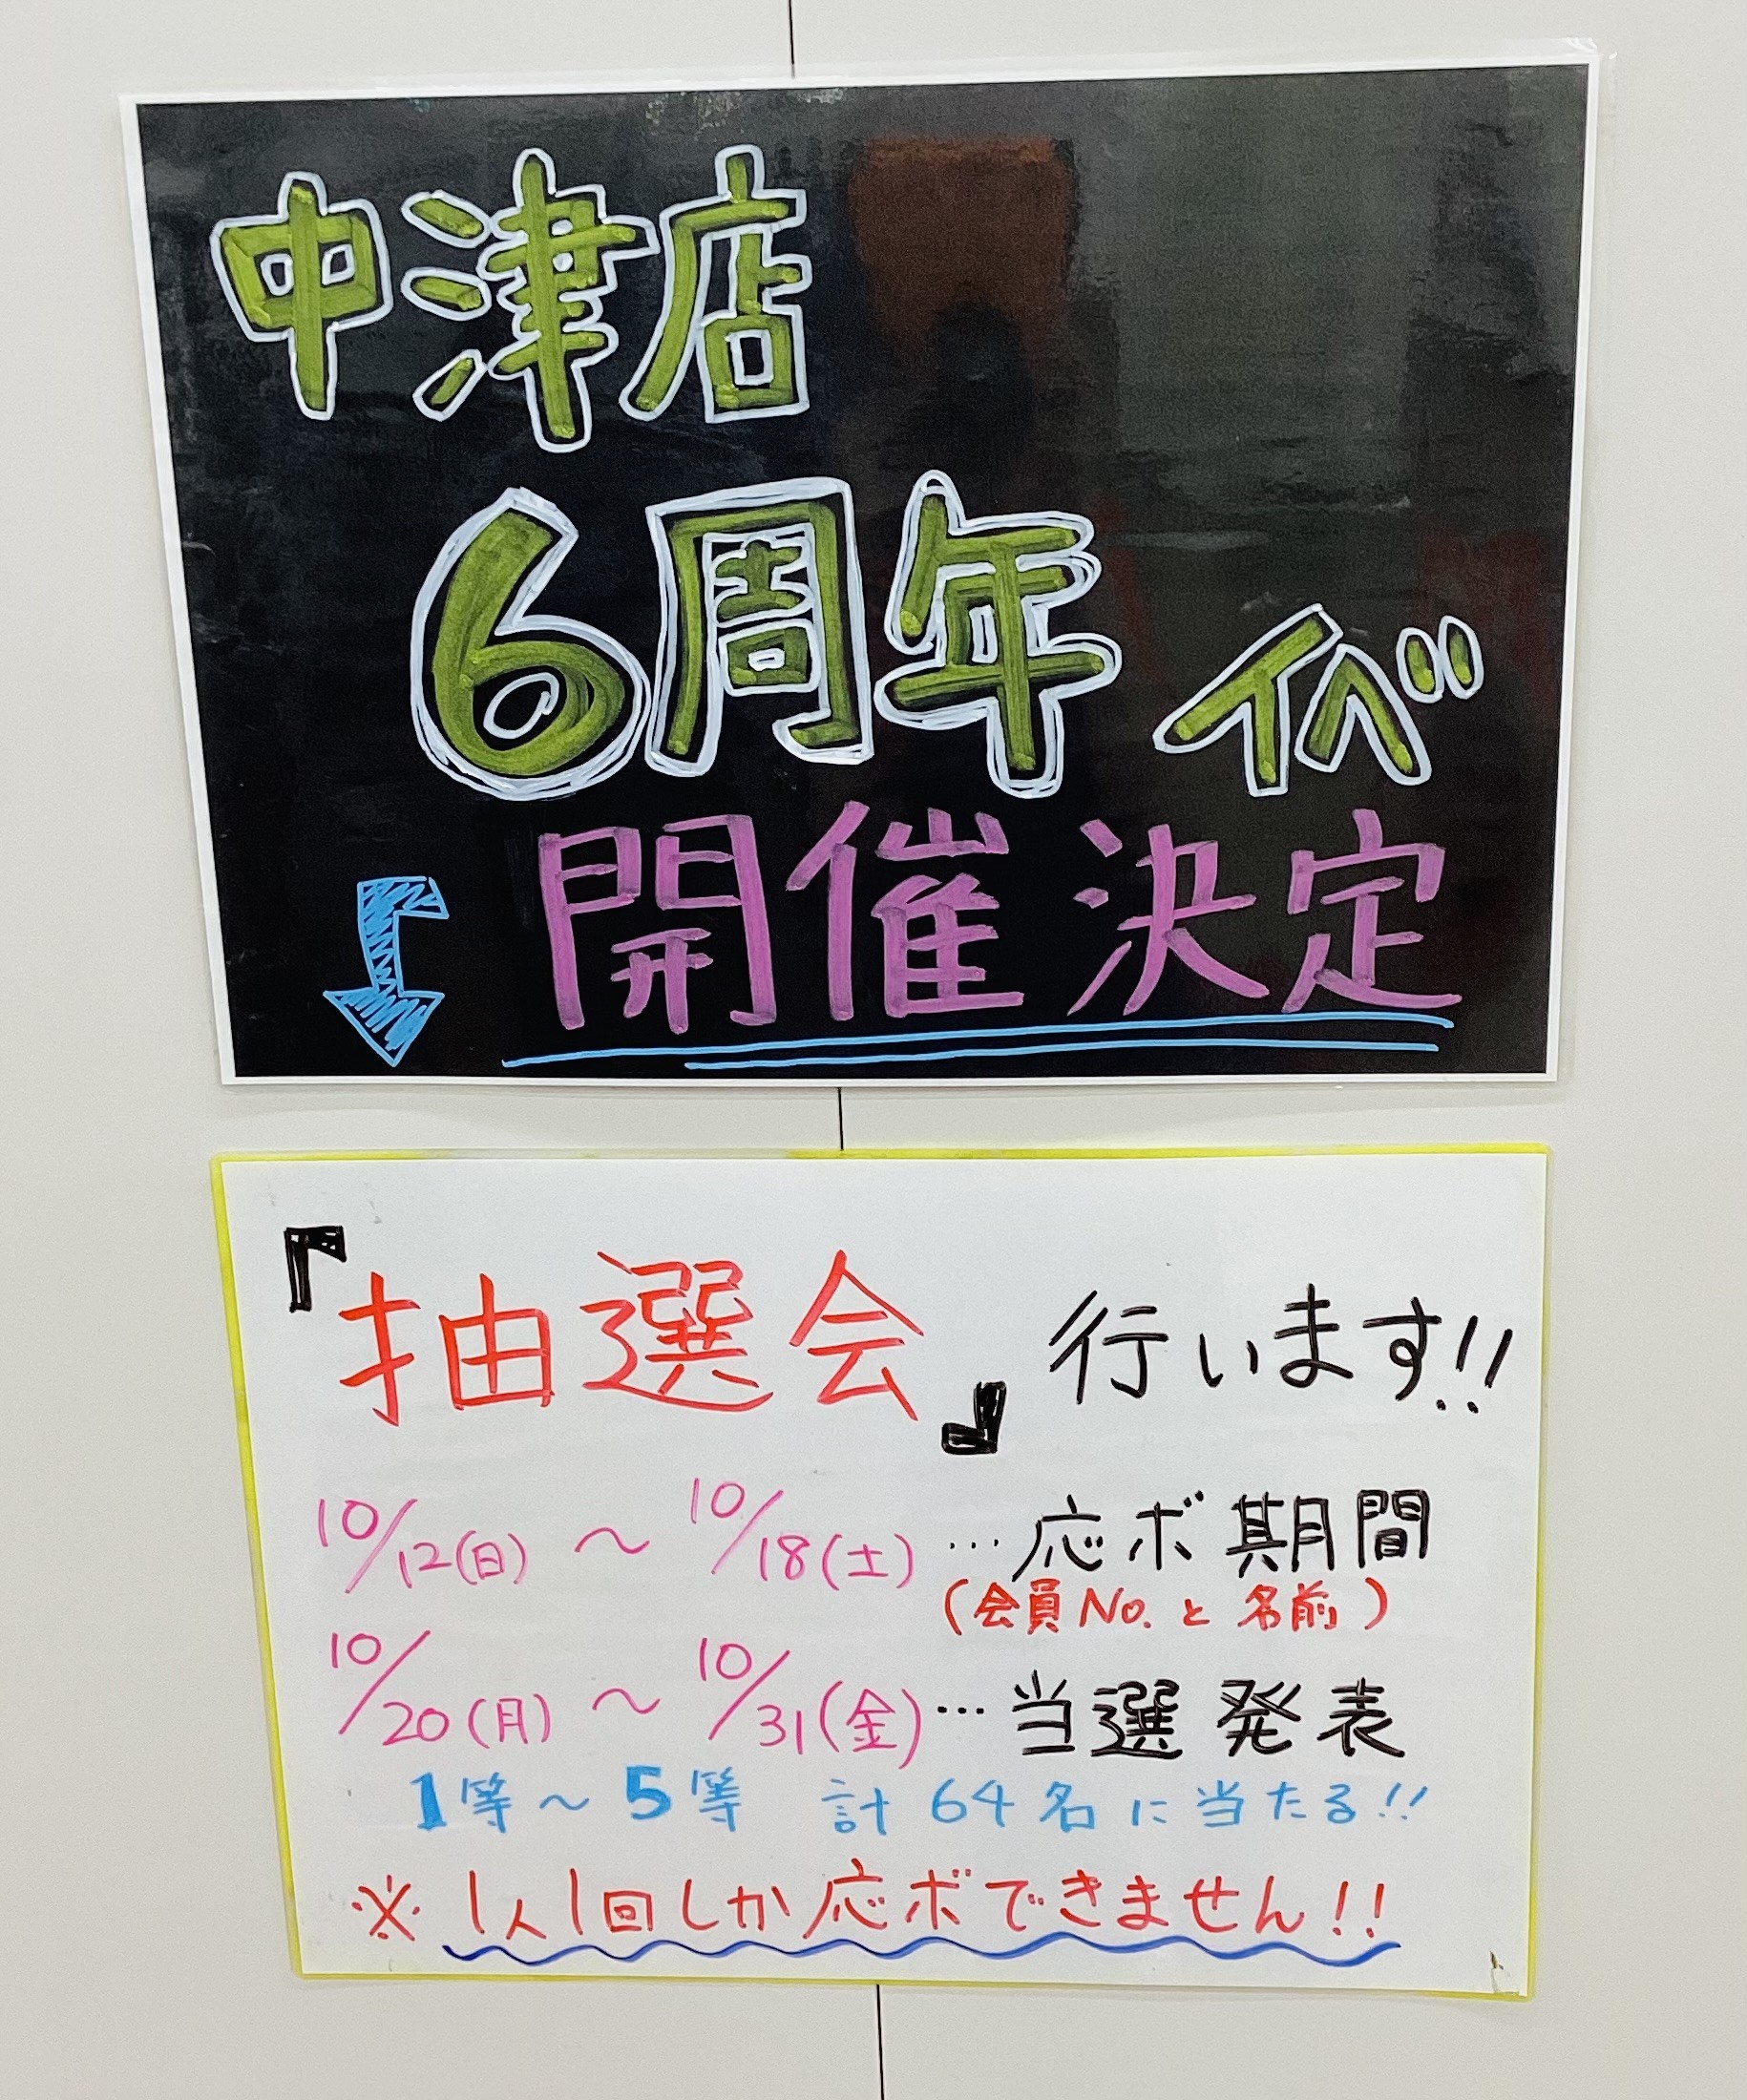 中津店
6周年イベ
開催決定
『抽選会』行います!!
10/12(日)～10/18(土)…応ボ期間
(会員No.と名前)
10/20(月)～10/31(金)…当選発表
1等～5等 計64名に当たる!!
※1人1回しか応ボできません!!